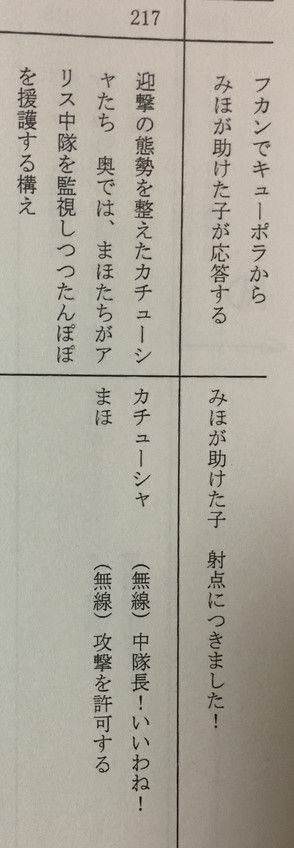 フカンでキューポラから
みほが助けた子が応答する
みほが助けた子　射点につきました！
217
迎撃の態勢を整えたカチューシ
ャたち　奥では、まほたちがア
リス中隊を監視しつつたんぽぽ
を援護する構え
カチューシャ　（無線）中隊長！いいわね！
まほ　（無線）攻撃を許可する